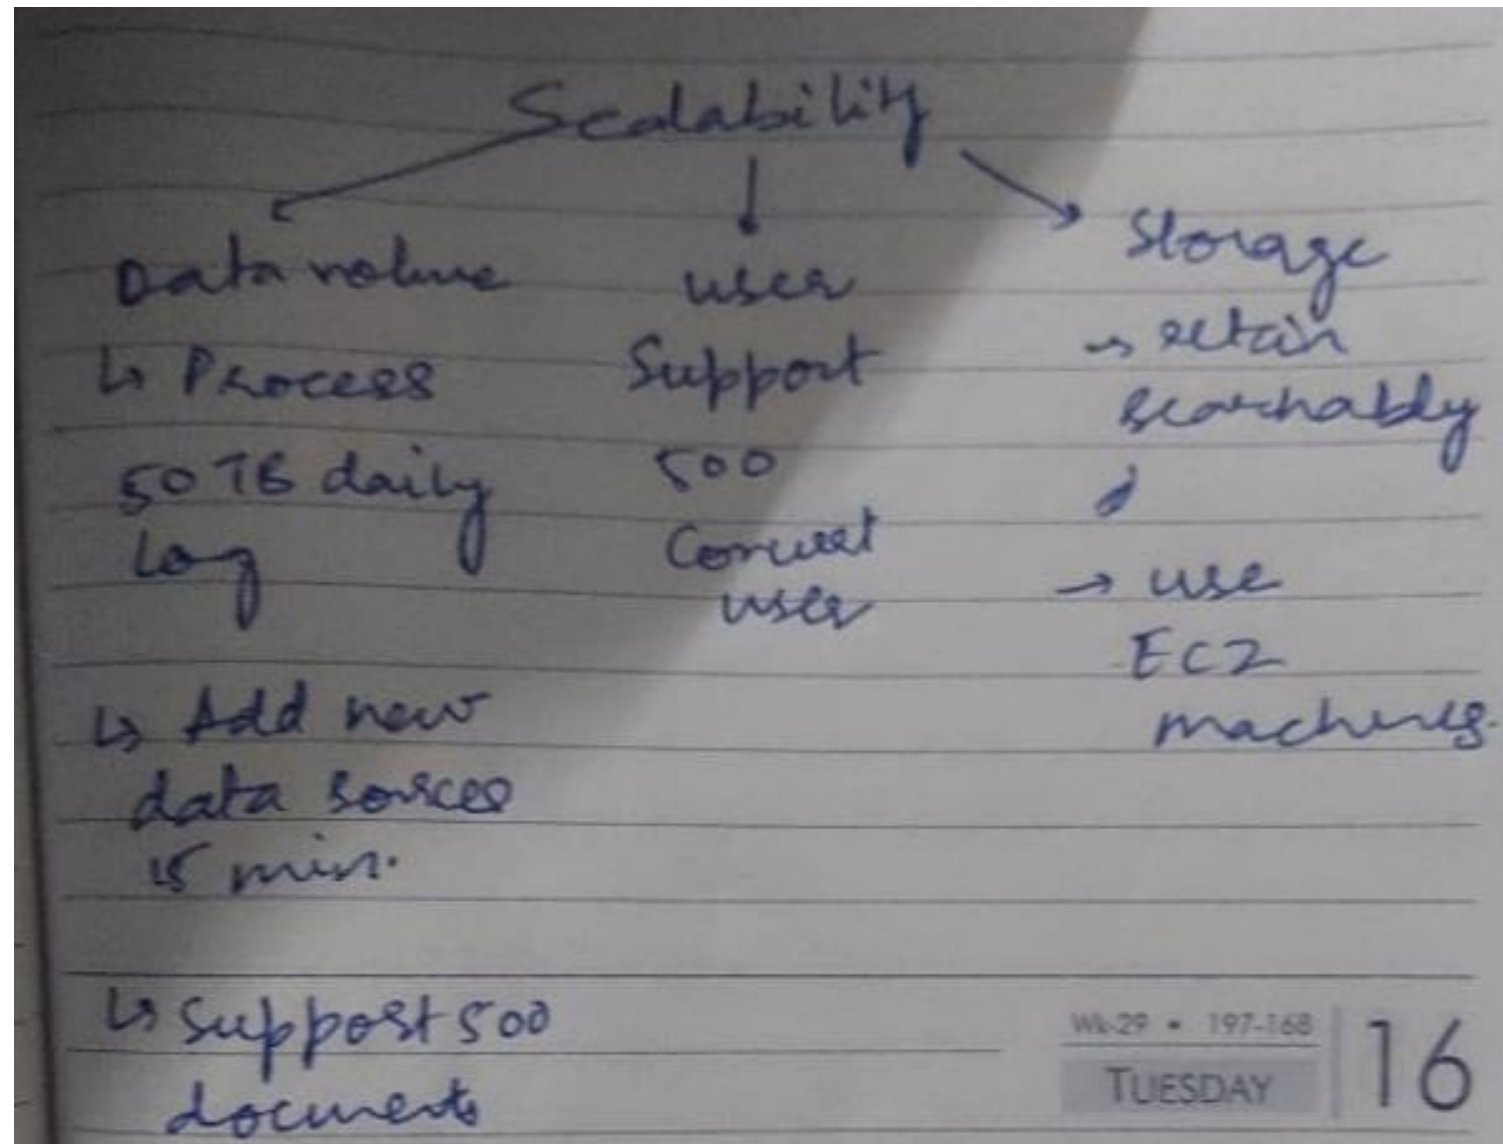 Scalability
Data volume
↳ Process
50 TB daily
Log
↳ Add new
data sources
15 min.
↳ Support 500
documents
user
Support
500
user
Storage
→ retain
→ use
EC2
machines.
Wk-29 • 197-168
TUESDAY
16